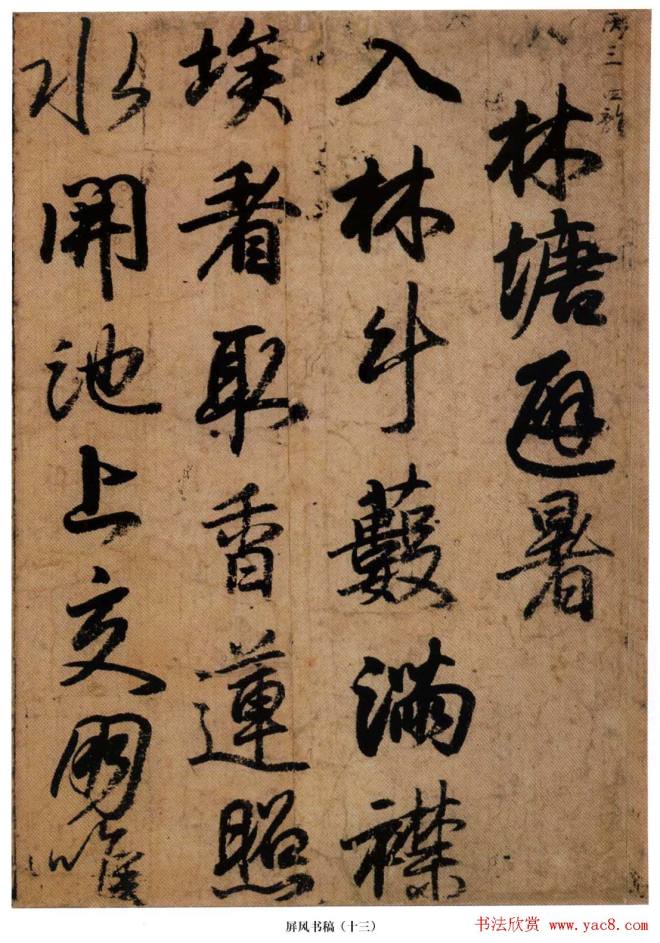 林塘避暑
入林斗藪滿襟
埃看取香蓮照
水開池上交朋唯
屏风书稿（十三）
书法欣赏 www.yac8.com